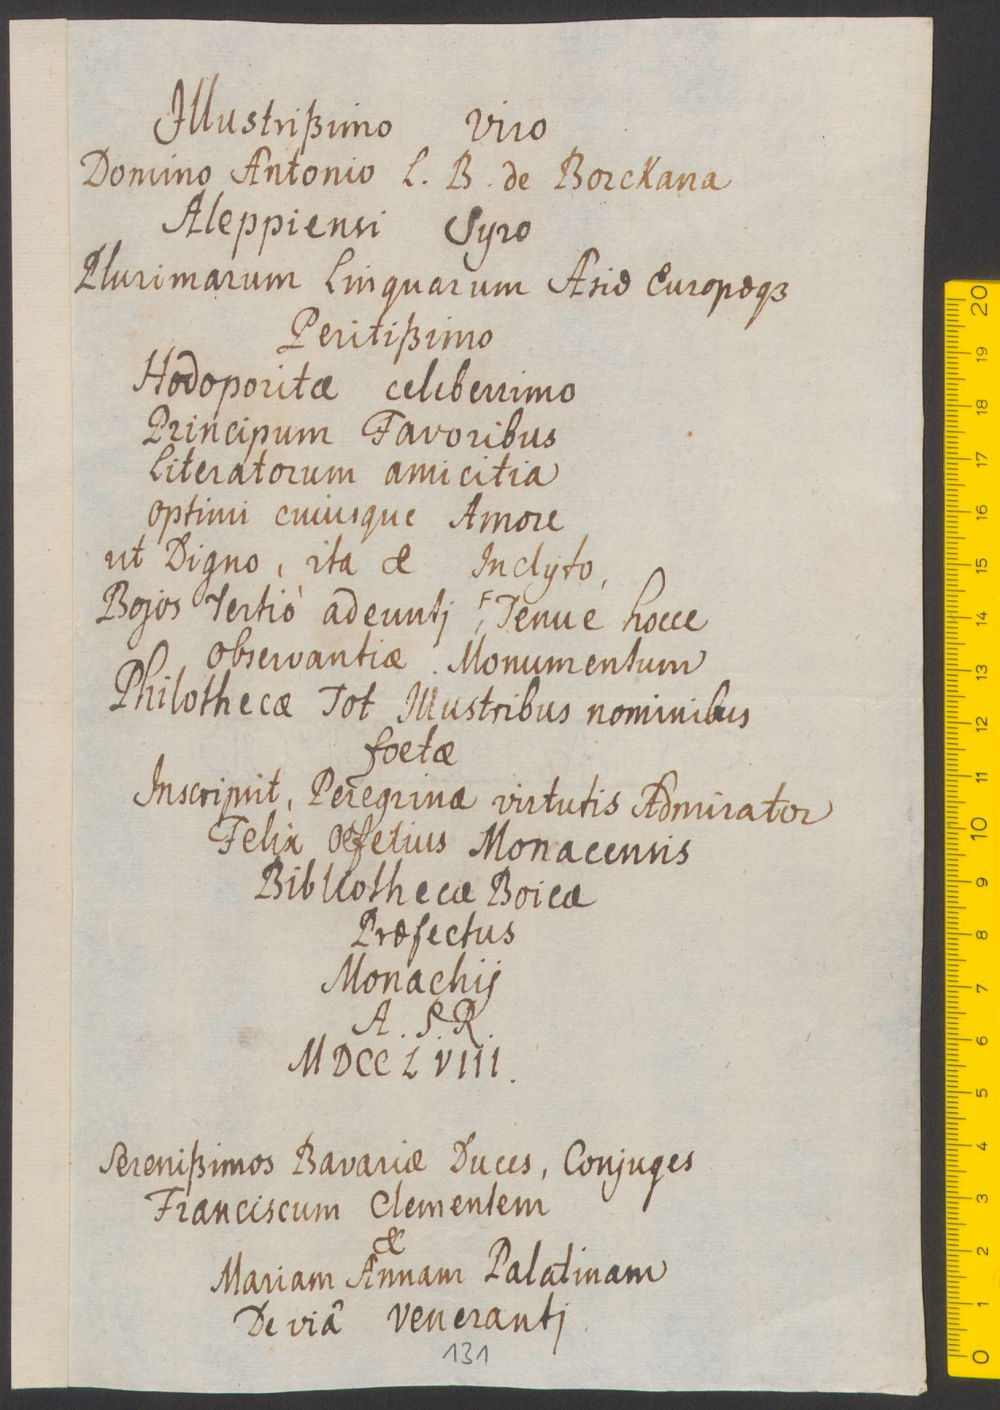 Illustrißimo Viro
Domino Antonio L. B. de Borckana
Aleppiensi Syro
Plurimarum Linguarum Asiæ Europæqȝ
Peritißimo
Hodoporitæ celeberrimo
Principum Favoribus
Literatorum amicitia
optimi cuiusque Amore
ut Digno, ita & Inclyto,
Bojos Tertiò adeuntj, Tenue hocce
observantiæ Monumentum
Philothecæ Tot Illustribus nominibus
foetæ
Inscripsit, Peregrinæ virtutis Admirator
Felix Oefelius Monacensis
Bibliothecæ Boicæ
Præfectus
Monachij
A. S. R.
MDCCLVIII.
Serenißimos Bavariæ Duces, Conjuges
Franciscum Clementem
&
Mariam Annam Palatinam
De viâ Venerantj
131
20
19
18
17
16
15
14
13
12
11
10
9
8
7
6
5
4
3
2
1
0